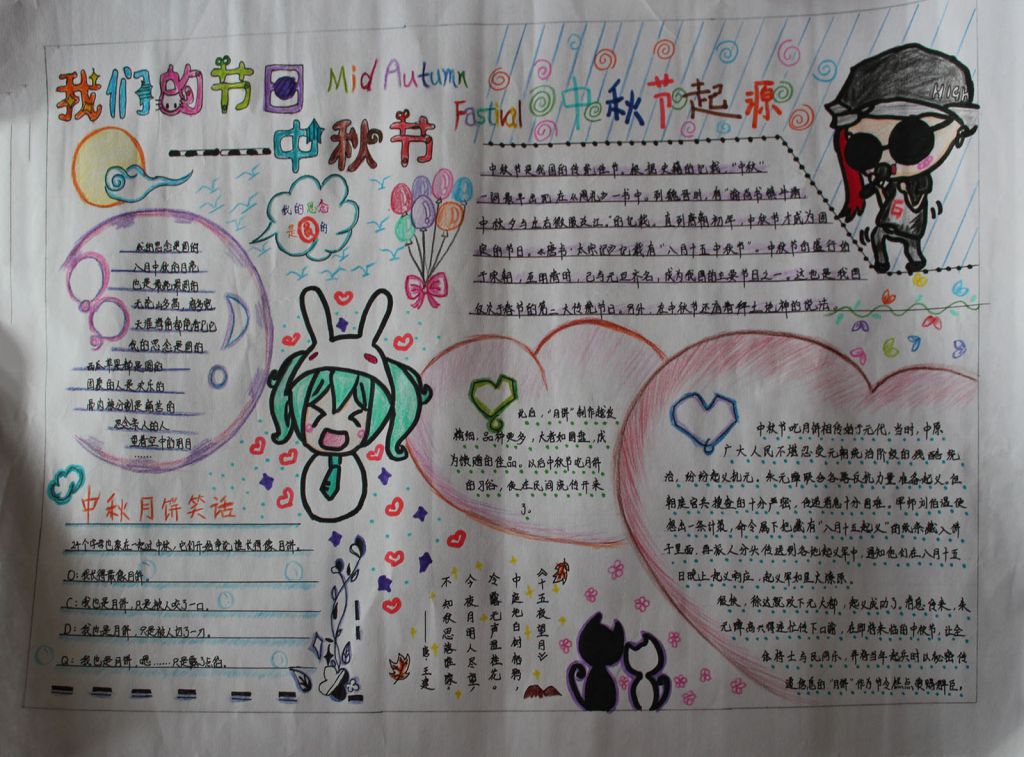 我们的节日
Mid Autumn
Fastival
——中秋节
中秋节起源
HIGH
中秋节是我国的传统佳节。根据史籍的记载，“中秋”
一词最早出现在《周礼》一书中。到魏晋时，有“谕尚书镇牛渚，
中秋夕与左右微服泛江”的记载。直到唐朝初年，中秋节才成为固
定的节日。《唐书·太宗记》记载有“八月十五中秋节”。中秋节的盛行始
于宋朝，至明清时，已与元旦齐名，成为我国的主要节日之一。这也是我国
仅次于春节的第二大传统节日。另外，在中秋节还有着拜土地神的说法。
我的思念
是圆的
我的思念是圆的
八月中秋的月亮
也是最亮最圆的
无论山多高，海多宽
天涯海角都能看见它
我的思念是圆的
西瓜苹果都是圆的
团聚的人是欢乐的
骨肉被分割是痛苦的
思念亲人的人
望着空中的明月
……
中秋月饼笑话
24个字母也聚在一起过中秋，它们开始争论谁长得像月饼。
O：我长得最像月饼。
C：我也是月饼，只是被人咬了一口。
D：我也是月饼，只是被人切了一刀。
Q：我也是月饼，嗯……只是露了馅。
此后，“月饼”制作越发
精细，品种更多，大者如圆盘，成
为馈赠的佳品。以后中秋节吃月饼
的习俗，便在民间流传开来
了。
中秋节吃月饼相传始于元代，当时，中原
广大人民不堪忍受元朝统治阶级的残酷统
治，纷纷起义抗元。朱元璋联合各路反抗力量准备起义。但
朝庭官兵搜查的十分严密，传递消息十分困难。军师刘伯温便
想出一条计策，命令属下把藏有“八月十五起义”的纸条藏入饼
子里面，再派人分头传送到各地起义军中，通知他们在八月十五
日晚上起义响应。起义军如星火燎原。
很快，徐达就攻下元大都，起义成功了。消息传来，朱
元璋高兴得连忙传下口谕，在即将来临的中秋节，让全
体将士与民同乐，并将当年起兵时以秘密传
递信息的“月饼”作为节令糕点赏赐群臣。
《十五夜望月》
中庭地白树栖鸦，
冷露无声湿桂花。
今夜月明人尽望，
不知秋思落谁家。
——唐·王建